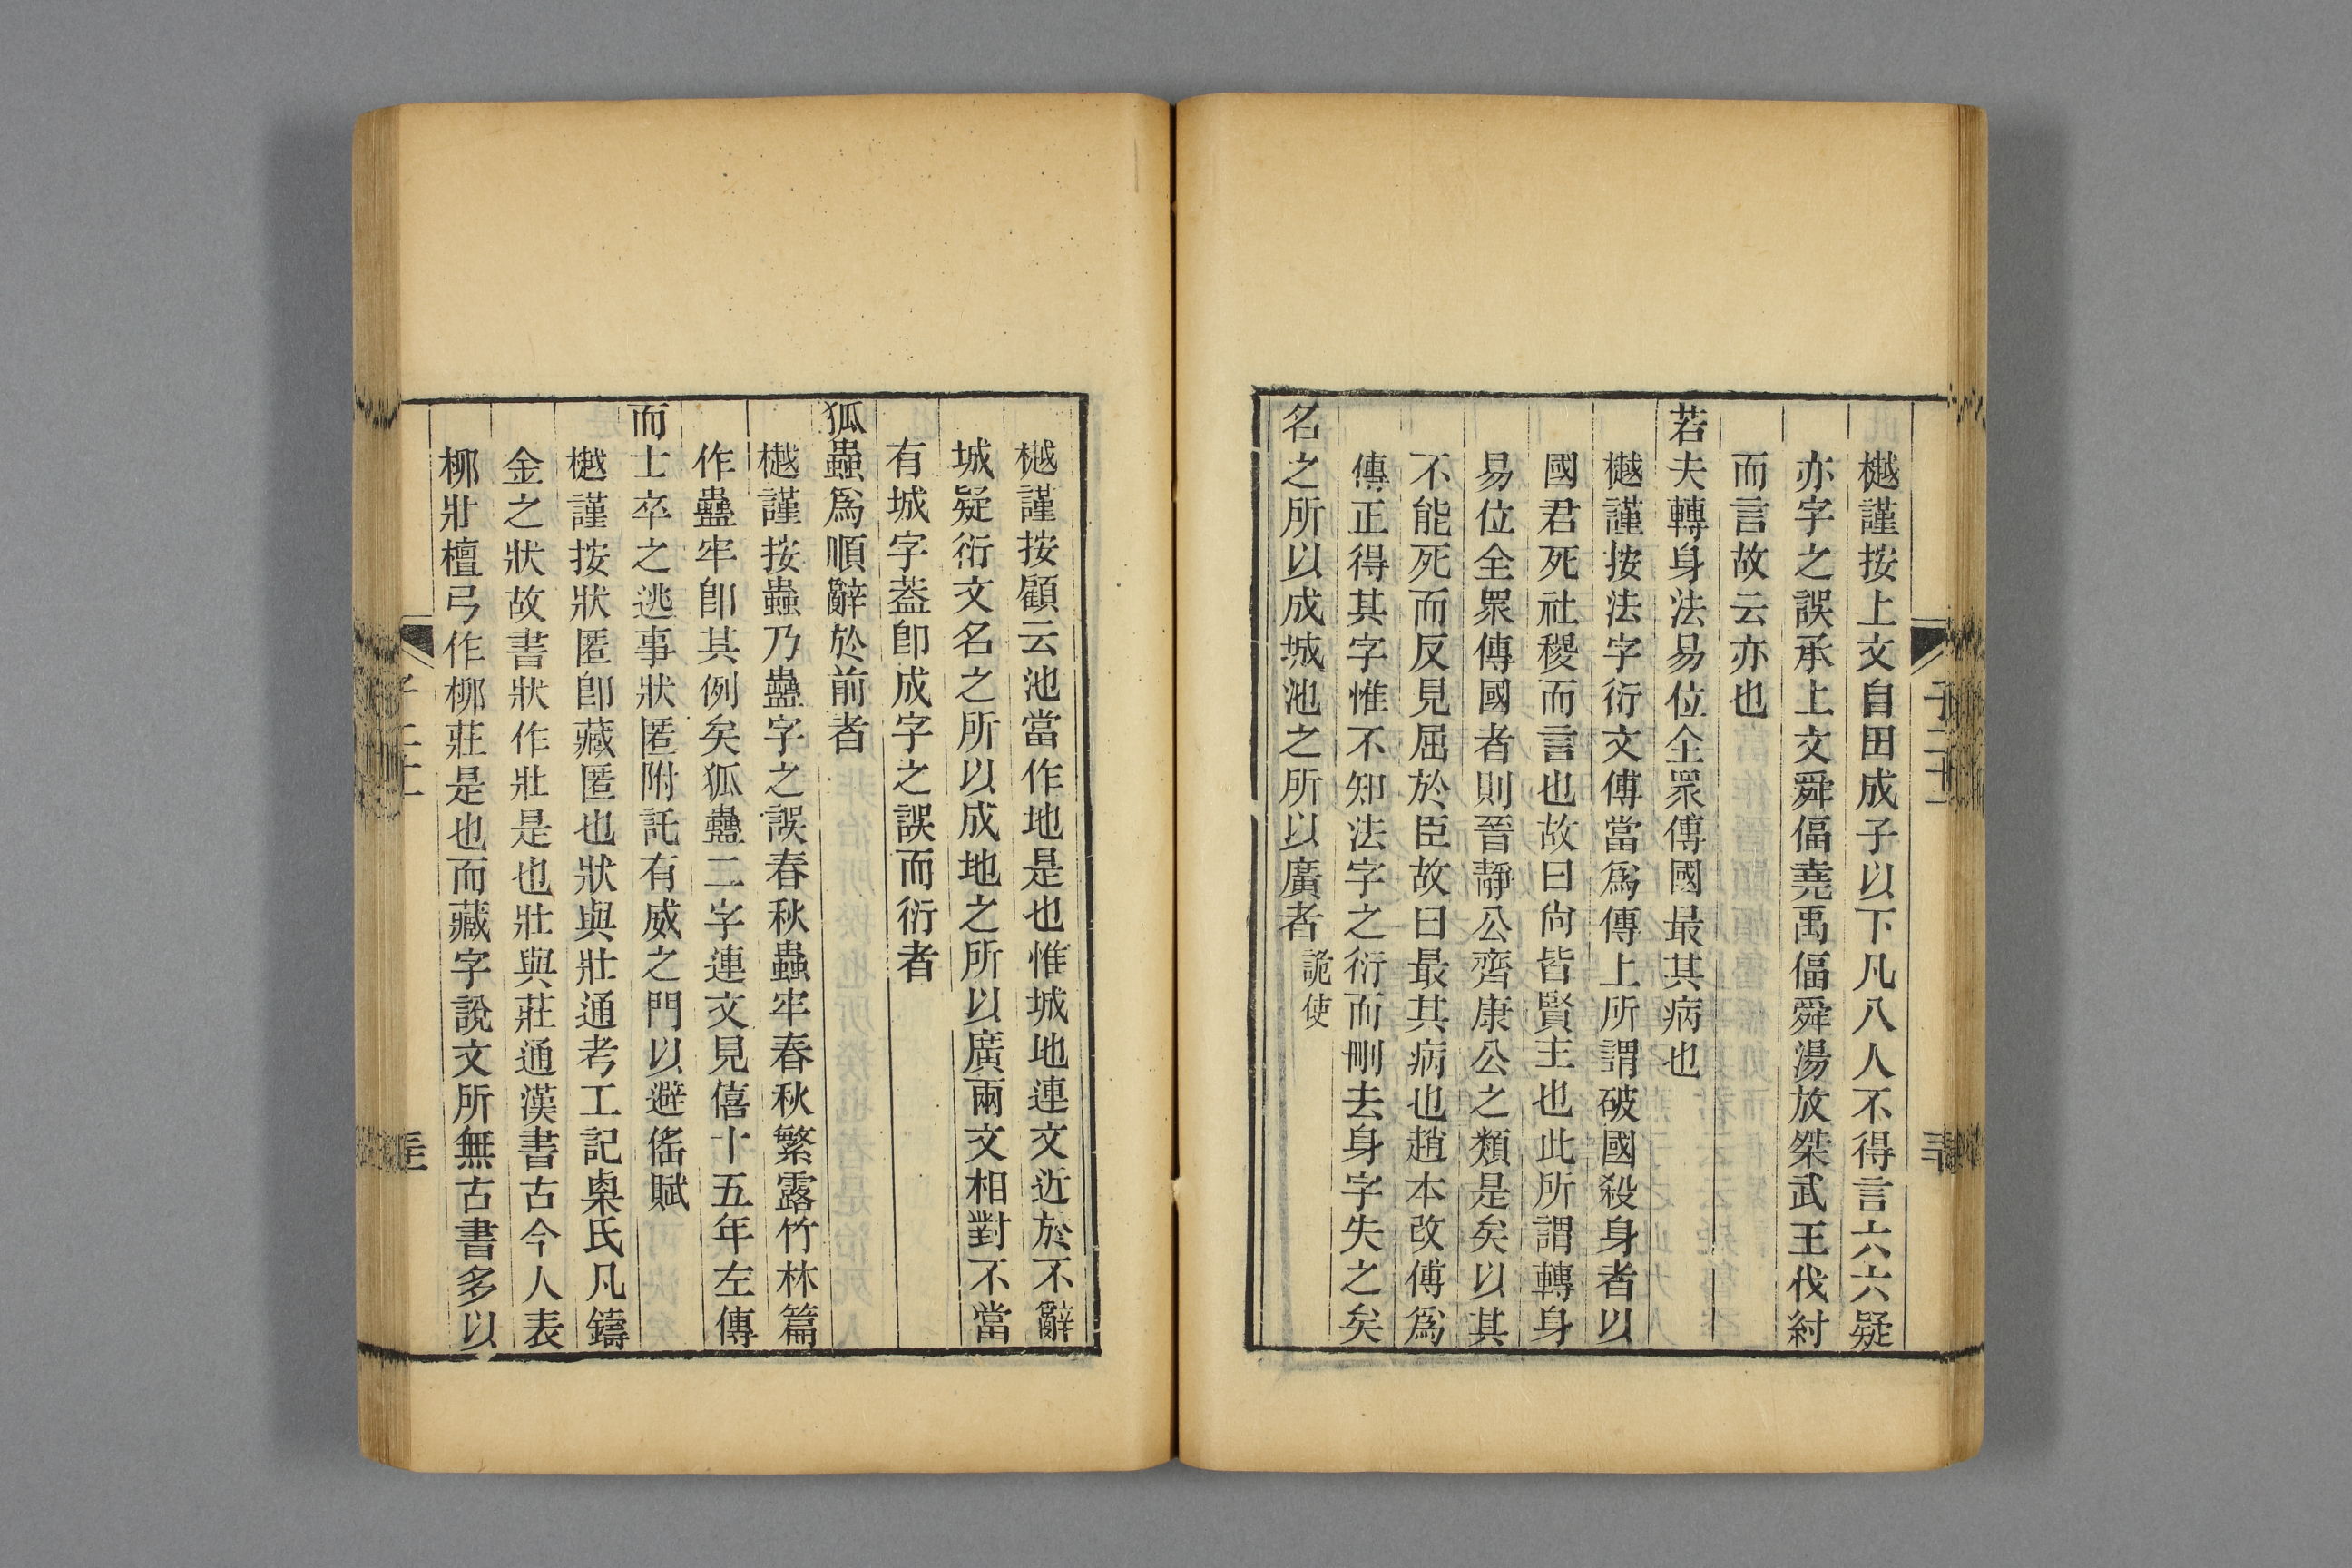 樾謹按上文自田成子以下凡八人不得言六六疑
亦字之誤承上文舜偪堯禹偪舜湯放桀武王伐紂
而言故云亦也
若夫轉身法易位全眾傅國最其病也
樾謹按法字衍文傅當爲傳上所謂破國殺身者以
國君死社稷而言也故曰尙皆賢主也此所謂轉身
易位全眾傳國者則晉靜公齊康公之類是矣以其
不能死而反見屈於臣故曰最其病也趙本改傅爲
傳正得其字惟不知法字之衍而刪去身字失之矣
名之所以成城池之所以廣者 詭使
樾謹按顧云池當作地是也惟城地連文近於不辭
城疑衍文名之所以成地之所以廣兩文相對不當
有城字葢卽成字之誤而衍者
狐蟲爲順辭於前者
樾謹按蟲乃蠱字之誤春秋蟲牢春秋繁露竹林篇
作蠱牢卽其例矣狐蠱二字連文見僖十五年左傳
而士卒之逃事狀匿附託有威之門以避徭賦
樾謹按狀匿卽藏匿也狀與壯通考工記㮚氏凡鑄
金之狀故書狀作壯是也壯與莊通漢書古今人表
柳壯檀弓作柳莊是也而藏字說文所無古書多以